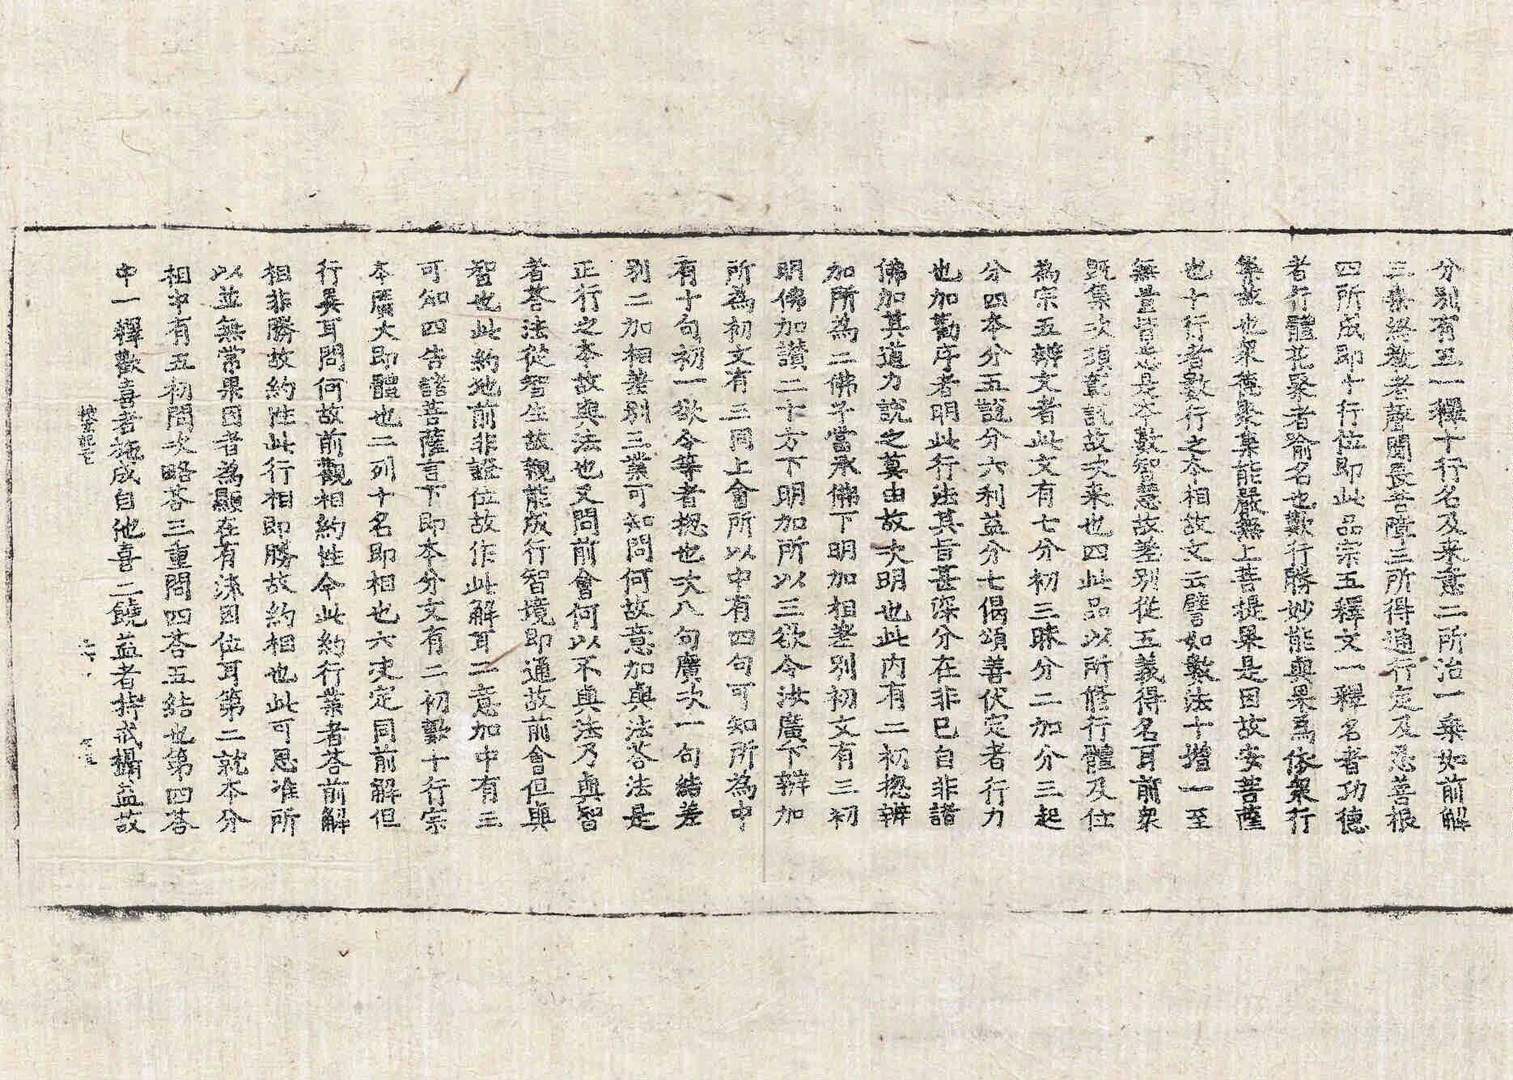 分別有五一釋十行名及來意二所治一乘如前解
三乘終教者聲聞畏苦障三所得通行定及慈善根
四所成即十行位即此品宗五釋文一釋名者功德
者行體花聚者喻名也歎行勝妙能與果爲依衆行
集故也衆德聚集能嚴無上菩提果是因故安菩薩
也十行者數行之本相故文云譬如數法十增一至
無量皆悉是本數智慧故差別從五義得名耳前衆
旣集次須彰說故次來也四此品以所修行體及位
為宗五辨文者此文有七分初三昧分二加分三起
分四本分五說分六利益分七偈頌善伏定者行力
也加勸序者明此行法其旨甚深分在非已自非諸
佛加其道力說之莫由故次明也此内有二初揔辨
加所為二佛子當承佛下明加相差別初文有三初
明佛加讚二十方下明加所以三欲令汝廣下辨加
所為初文有三同上會所以中有四句可知所為中
有十句初一欲令等者揔也次八句廣次一句結差
别二加相差別三業可知問何故意加與法答法是
正行之本故與法也又問前會何以不與法乃與智
者荅法從智生故親能成行智境即通故前會但與
智也此約地前非證位故作此解耳二意加中有三
可知四告諸菩薩言下即本分文有二初歎十行宗
本廣大即體也二列十名即相也六決定同前解但
行異耳問何故前觀相約性今此約行業者荅前解
相非勝故約性此行相即勝故約相也此可思准所
以並無常果因者為顯在有流因位耳第二就本分
相中有五初問次略荅三重問四荅五結也第四荅
中一釋歡喜者施成自他喜二饒益者持戒攝益故
搜玄記二